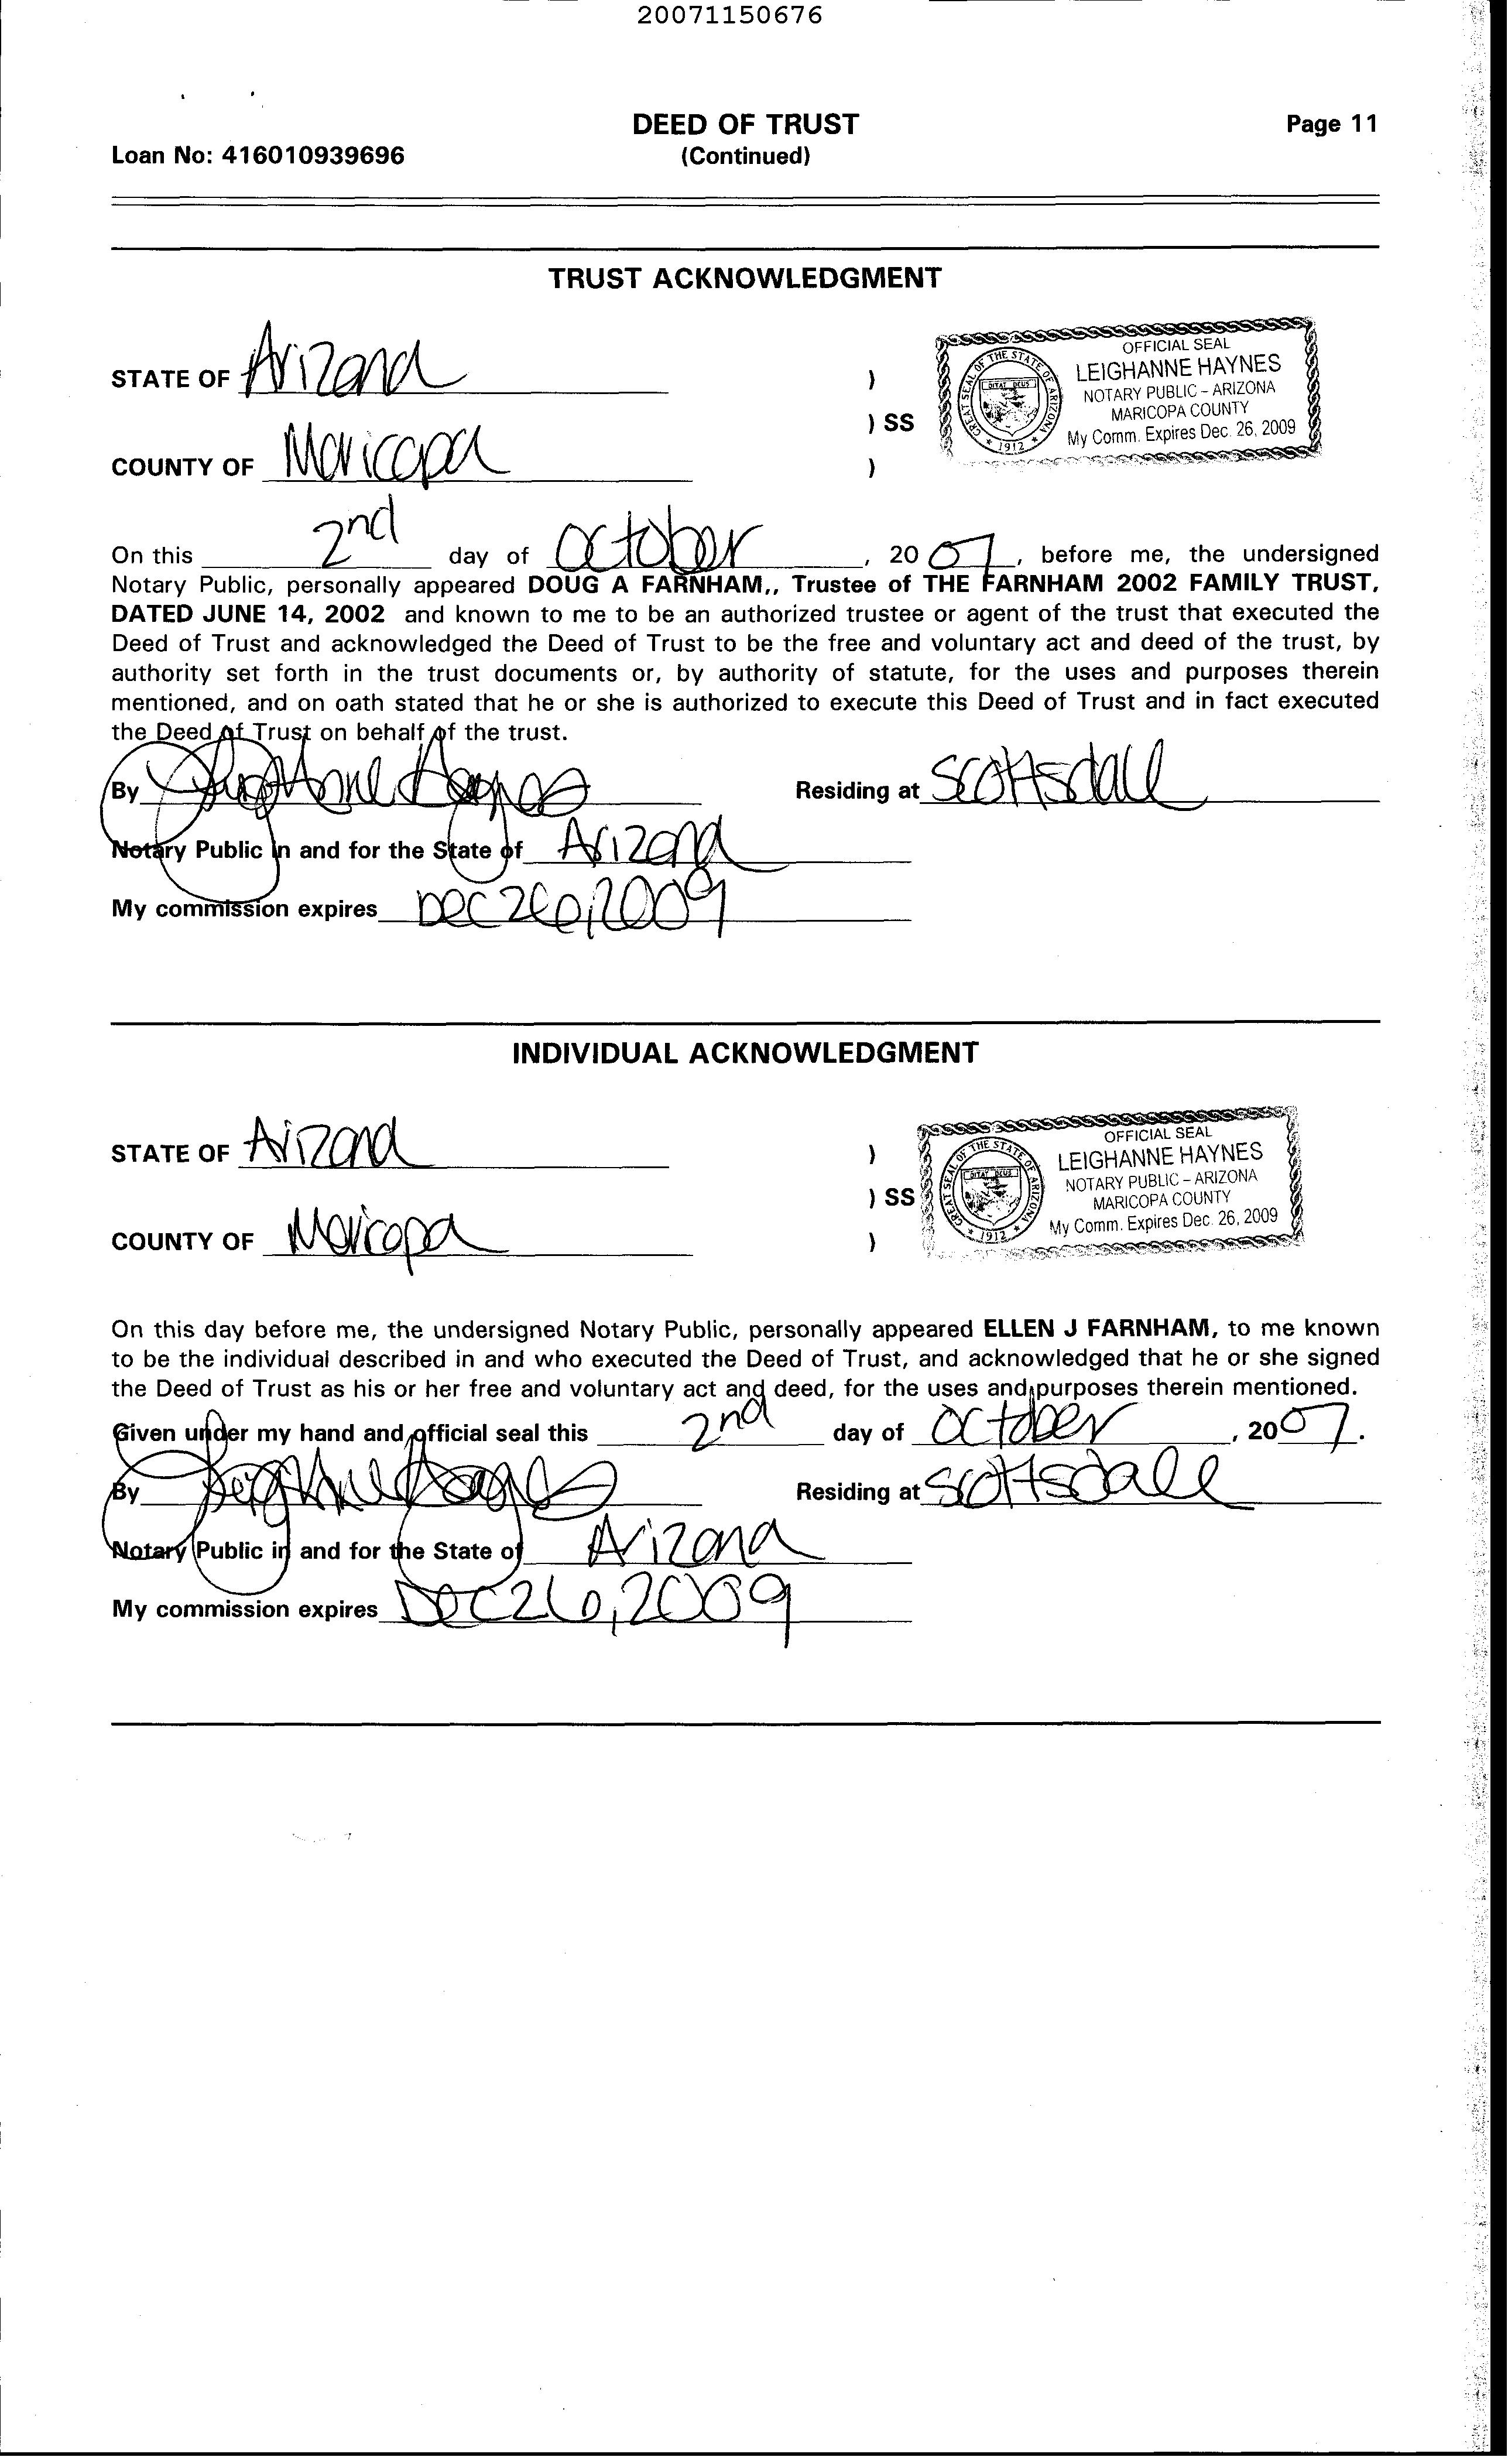 20071150676
DEED OF TRUST
Page 11
Loan No: 416010939696
(Continued)
TRUST ACKNOWLEDGMENT
STATE OF Arizona
)
) SS
COUNTY OF Maricopa
)
OFFICIAL SEAL
LEIGHANNE HAYNES
NOTARY PUBLIC – ARIZONA
MARICOPA COUNTY
My Comm. Expires Dec. 26, 2009
GREAT SEAL OF THE STATE OF ARIZONA
DITAT DEUS
1912
On this 2nd day of October, 20 07, before me, the undersigned
Notary Public, personally appeared DOUG A FARNHAM,, Trustee of THE FARNHAM 2002 FAMILY TRUST,
DATED JUNE 14, 2002 and known to me to be an authorized trustee or agent of the trust that executed the
Deed of Trust and acknowledged the Deed of Trust to be the free and voluntary act and deed of the trust, by
authority set forth in the trust documents or, by authority of statute, for the uses and purposes therein
mentioned, and on oath stated that he or she is authorized to execute this Deed of Trust and in fact executed
the Deed of Trust on behalf of the trust.
By Leighanne Haynes Residing at Scottsdale
Notary Public in and for the State of Arizona
My commission expires Dec 26, 2009
INDIVIDUAL ACKNOWLEDGMENT
STATE OF Arizona
)
) SS
COUNTY OF Maricopa
)
OFFICIAL SEAL
LEIGHANNE HAYNES
NOTARY PUBLIC – ARIZONA
MARICOPA COUNTY
My Comm. Expires Dec. 26, 2009
GREAT SEAL OF THE STATE OF ARIZONA
DITAT DEUS
1912
On this day before me, the undersigned Notary Public, personally appeared ELLEN J FARNHAM, to me known
to be the individual described in and who executed the Deed of Trust, and acknowledged that he or she signed
the Deed of Trust as his or her free and voluntary act and deed, for the uses and purposes therein mentioned.
Given under my hand and official seal this 2nd day of October, 20 07.
By Leighanne Haynes Residing at Scottsdale
Notary Public in and for the State of Arizona
My commission expires Dec 26, 2009